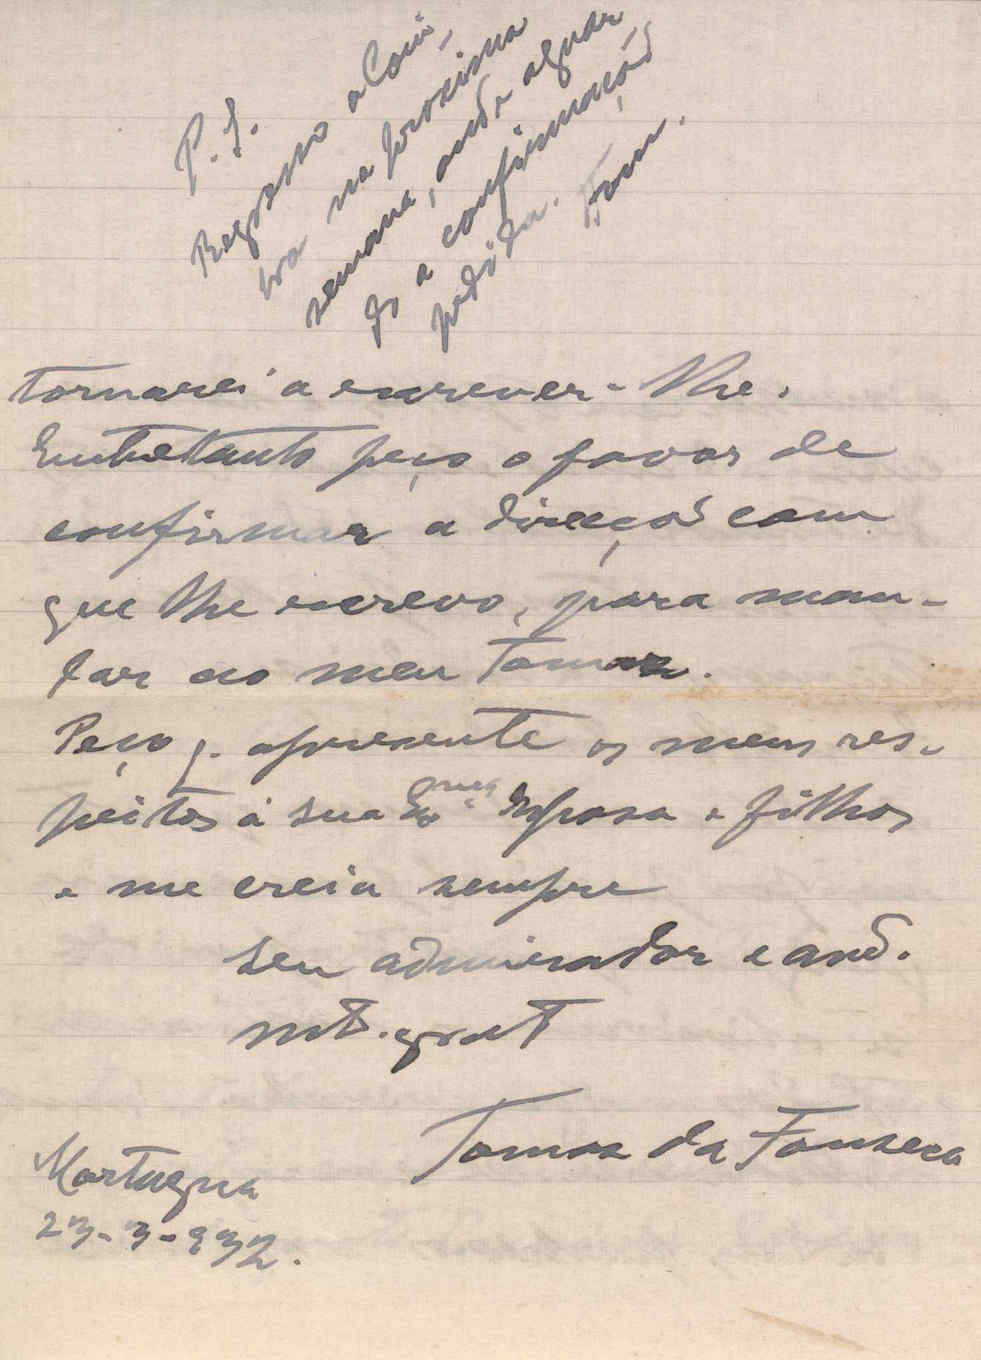 P. S.
Regresso a Coim-
bra na proxima
semana, onde aguar
do a confirmação
pedida. Tom.
tornarei a escrever-lhe.
Entretanto peço o favor de
confirmar a direcção com
que lhe escrevo, para man-
dar ao meu Tomaz.
Peço q. apresente os meus res-
peitos á sua Exma Esposa e filhos
e me creia sempre
seu admirador e amo.
mto. grato
Tomaz da Fonseca
Mortagua
23-3-932.